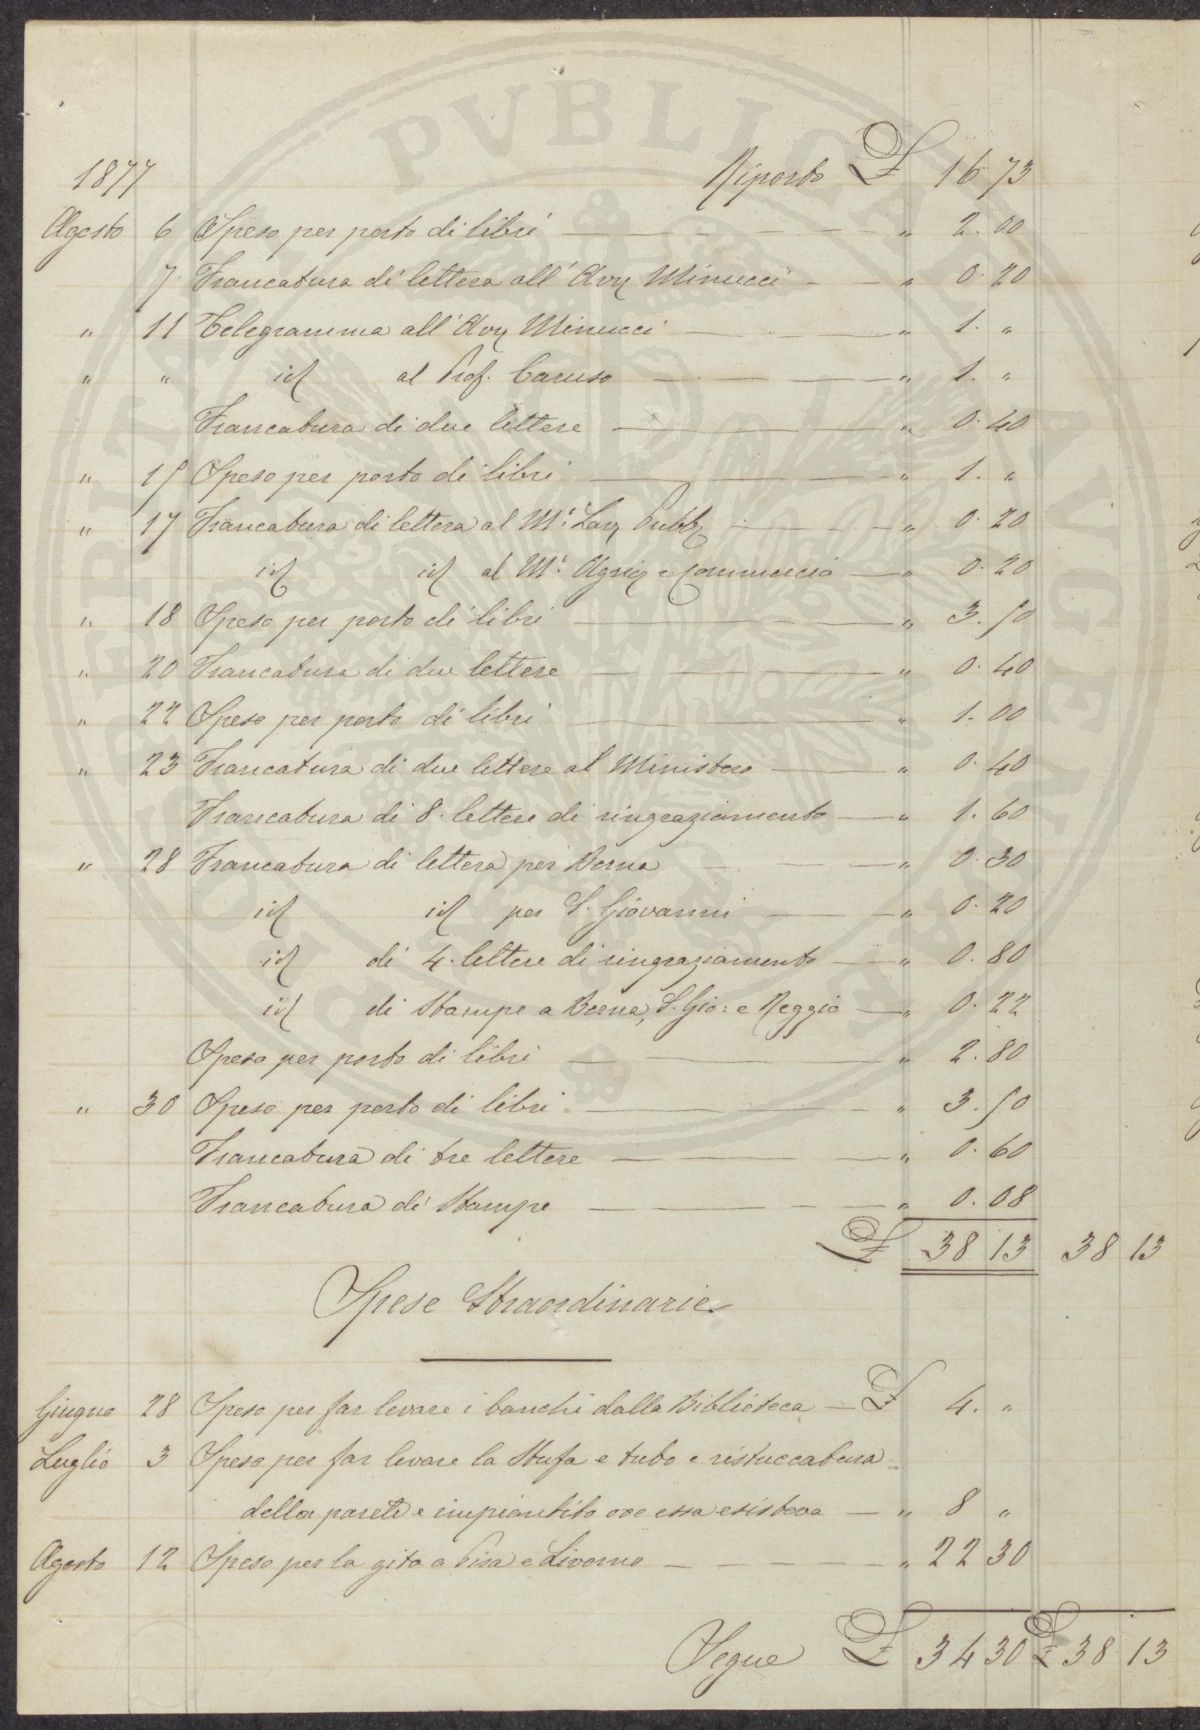 PVBLICAE VTILITATI PROSPERITATI
1877 Riporto £ 16 73
Agosto 6 Spese per porto di libri " 2. 00
7 Francatura di lettera all' Avv Minucci " 0. 20
" 11 Telegramma all' Avv Minucci " 1. "
" " id al Prof. Caruso " 1. "
Francatura di due lettere " 0. 40
" 15 Spese per porto di libri " 1. "
" 17 Francatura di lettera al M.º Lav Pubb " 0. 20
id id al M.º Agric e Commercio " 0. 20
" 18 Spese per porto di libri " 3. 50
" 20 Francatura di due lettere " 0. 40
" 22 Spese per porto di libri " 1. 00
" 23 Francatura di due lettere al Ministero " 0. 40
Francatura di 8. lettere di ringraziamento " 1. 60
" 28 Francatura di lettera per Berna " 0. 30
id id per S. Giovanni " 0. 20
id di 4. lettere di ringraziamento " 0. 80
id di Stampe a Berna, S. Gio: e Reggio " 0. 22
Spese per porto di libri " 2. 80
" 30 Spese per porto di libri " 3. 50
Francatura di tre lettere " 0. 60
Francatura di Stampe " 0. 08
£ 38 13 38 13
Spese Straordinarie
Giugno 28 Spese per far levare i banchi dalla Biblioteca £ 4. "
Luglio 3 Spese per far levare la Stufa e tubo e ristuccatura
della parete e impiantito ove essa esisteva " 8 "
Agosto 12 Spese per la gita a Pisa e Livorno " 22 30
Segue £ 34 30 £ 38 13